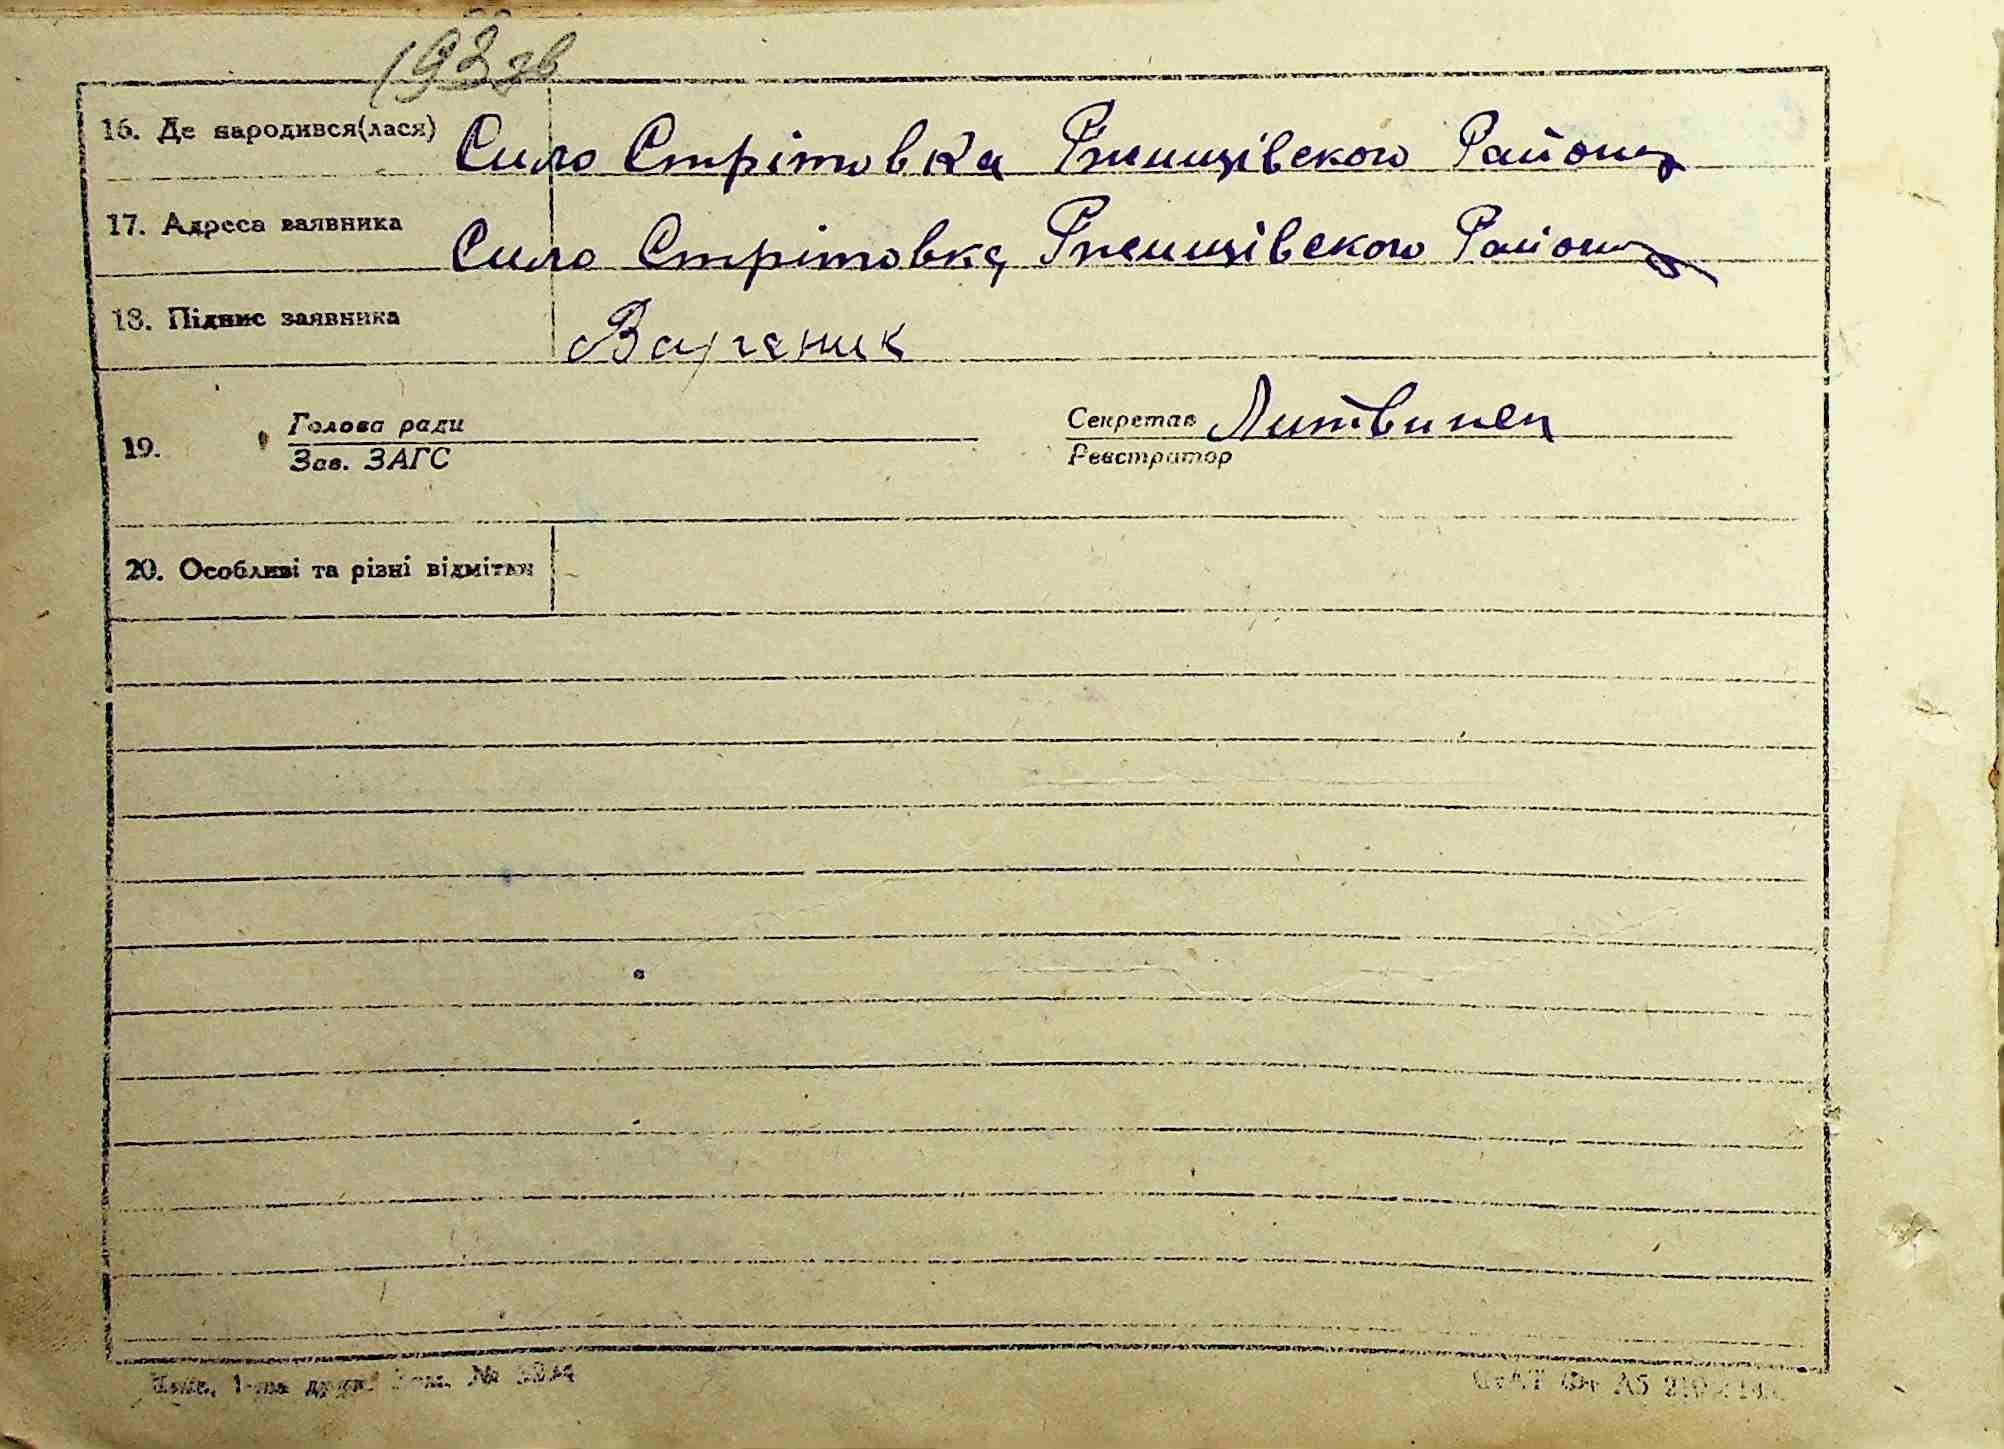 193 зв
16. Де народився(лася) Сило Стрітовка Ржищівского Района
17. Адреса заявника Сило Стрітовка Ржищівского Района
18. Підпис заявника
19. Голова ради Секретар Литвинец
Зав. ЗАГС Реєстратор
20. Особливі та різні відмітки